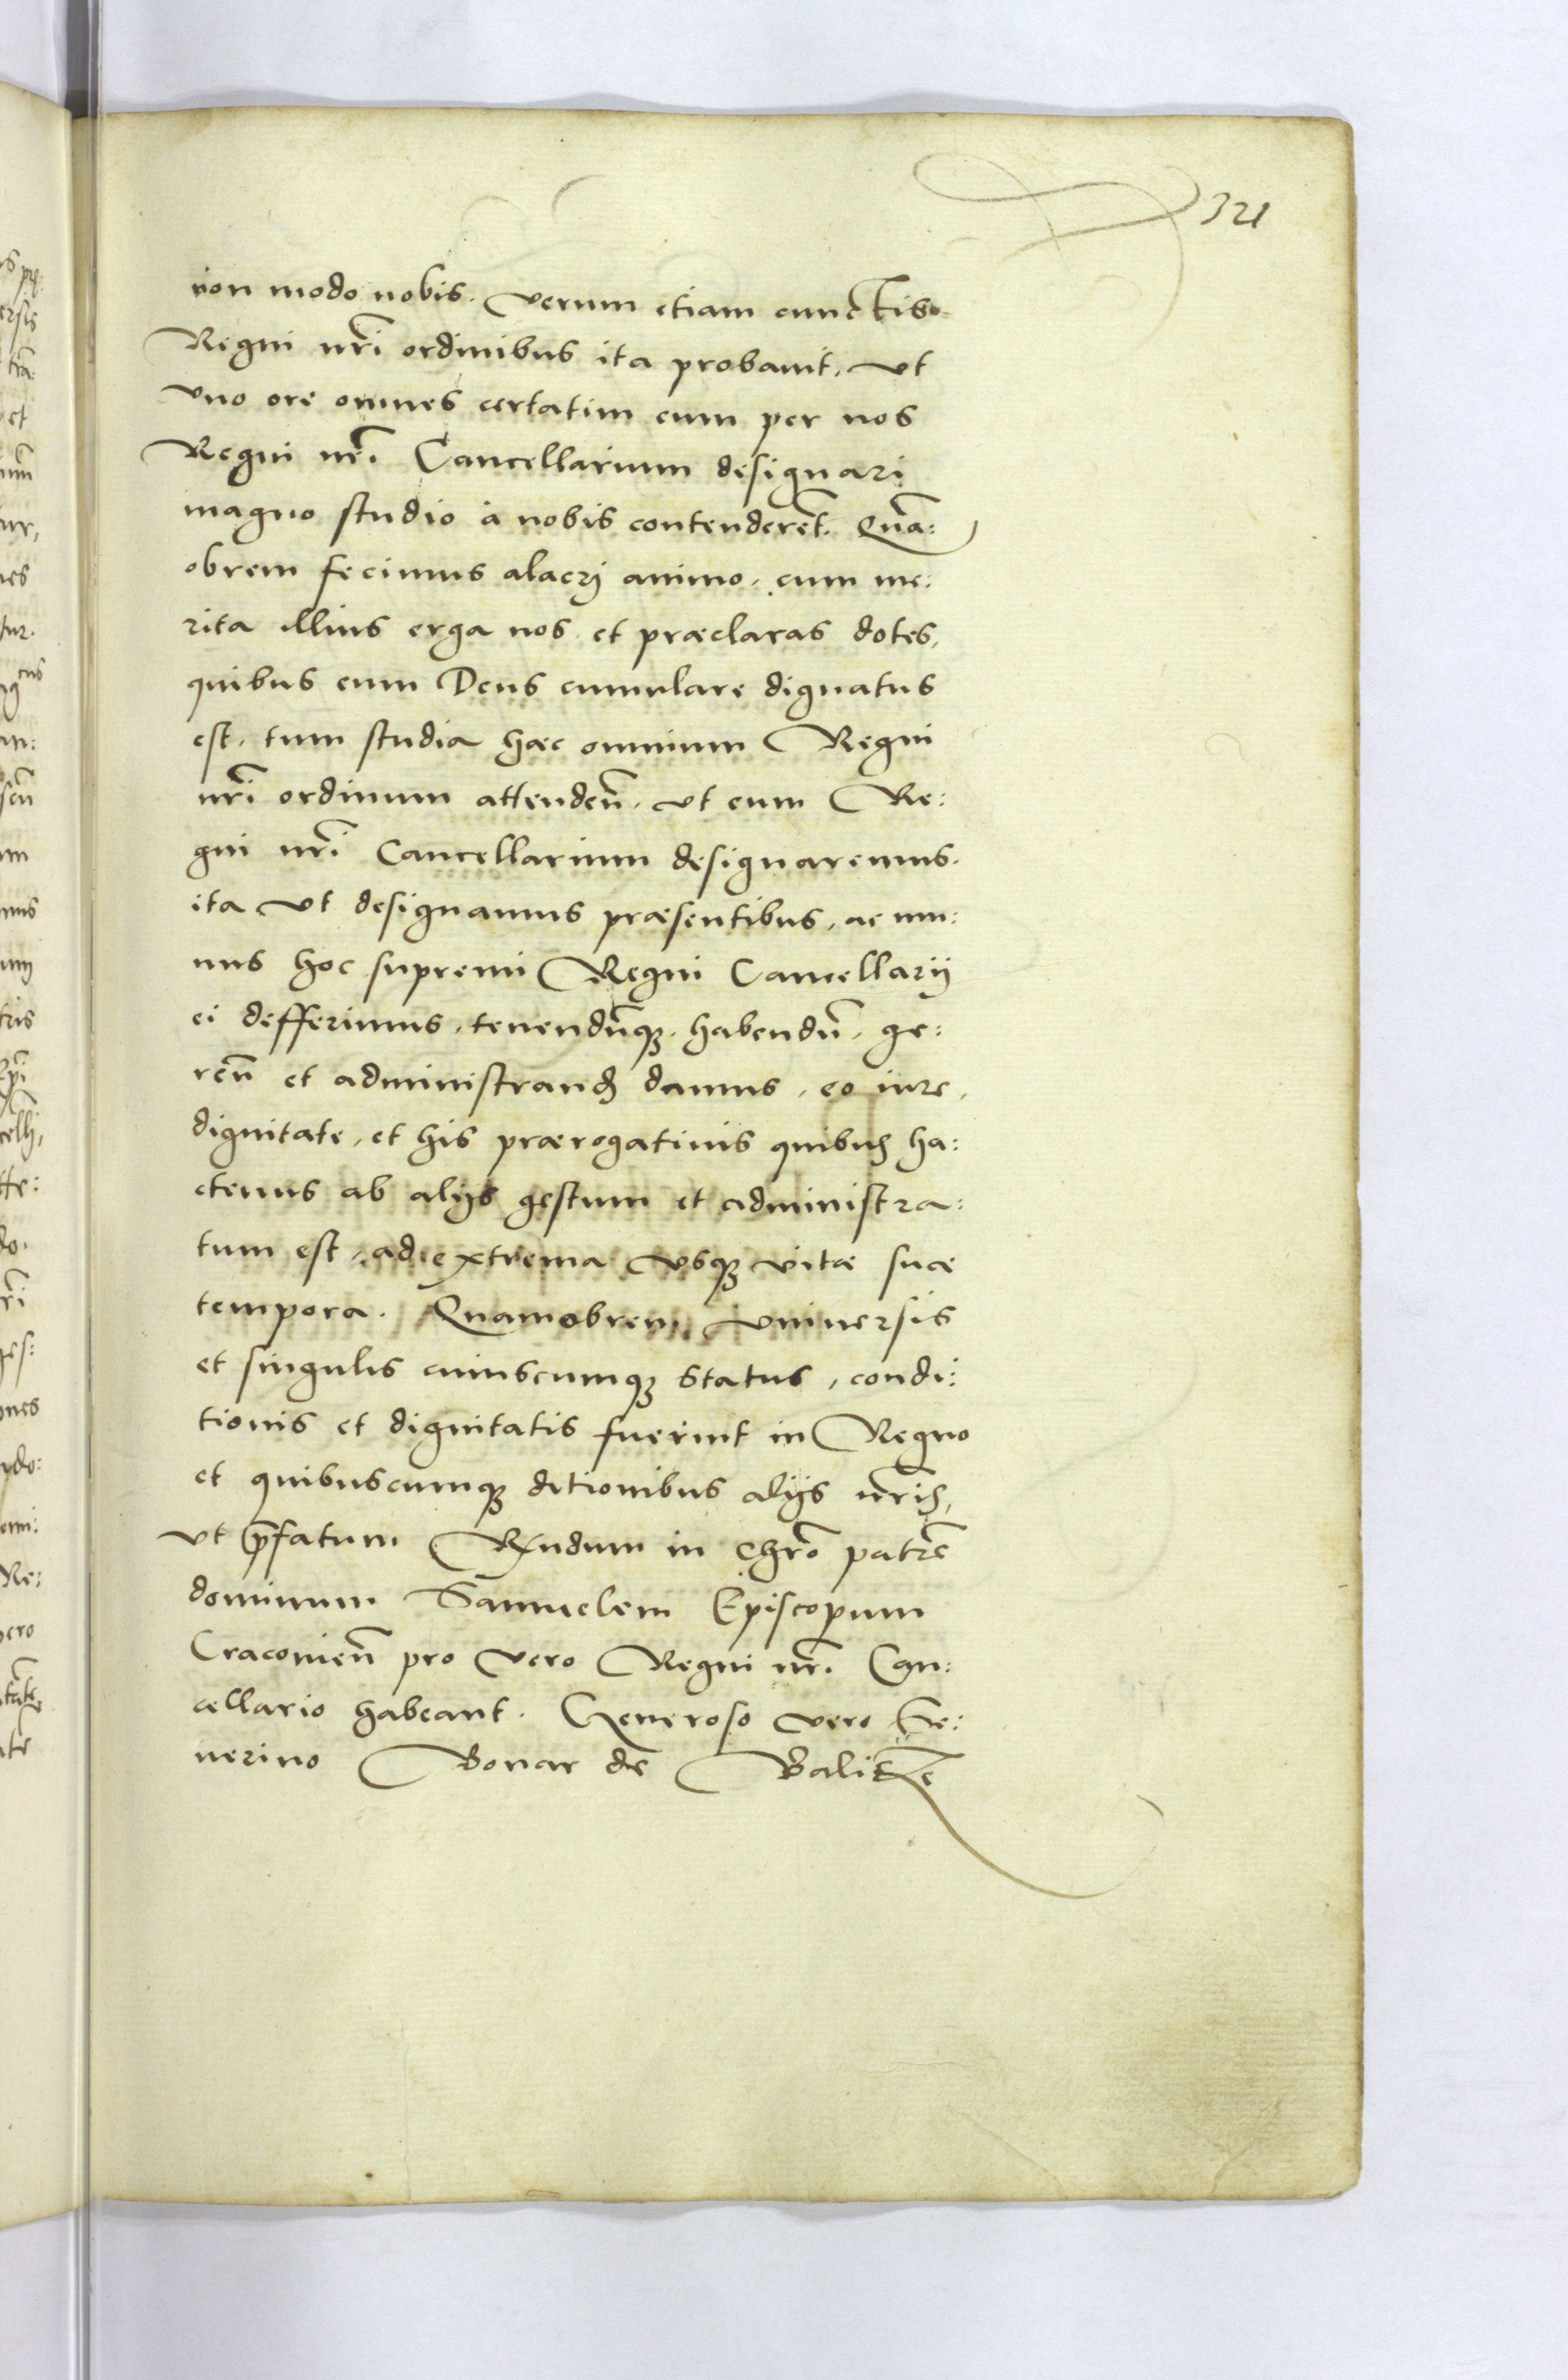 321
non modo nobis. verum etiam cunctis
Regni nr̃i ordinibus ita probauit, vt
vno ore omnes certatim eum per nos
Regni nr̃i Cancellarium designari
magno studio à nobis contenderẽt. Quã:
obrem fecimus alacrj animo, cum me:
rita illius erga nos, et præclaras dotes,
quibus eum Deus cumulare dignatus
est, tum studia hæc omnium Regni
nr̃i ordinum attendeñ, vt eum Re:
gni nr̃i Cancellarium designaremus.
ita vt designamus præsentibus, ac mu:
nus hoc supremi Regni Cancellarij
ei defferimus, tenendũqꝫ, habendũ, ge:
reñ et administrandꝫ damus, eo iure,
dignitate, et his prærogatiuis quibus ha:
ctenus ab alijs gestum et administra:
tum est, ad extrema vsqꝫ vitæ suæ
tempora. Quamobrem vniuersis
et singulis cuiuscumqꝫ status, condi:
tionis et dignitatis fuerint in Regno
et quibuscumqꝫ ditionibus alijs nr̃is,
vt p̃fatum Rñdum in Chr̃o patrẽ
dominum Samuelem Episcopum
Cracouieñ pro vero Regni nr̃i Can:
cellario habeant. Generoso vero Se:
uerino Bonar de Balicze